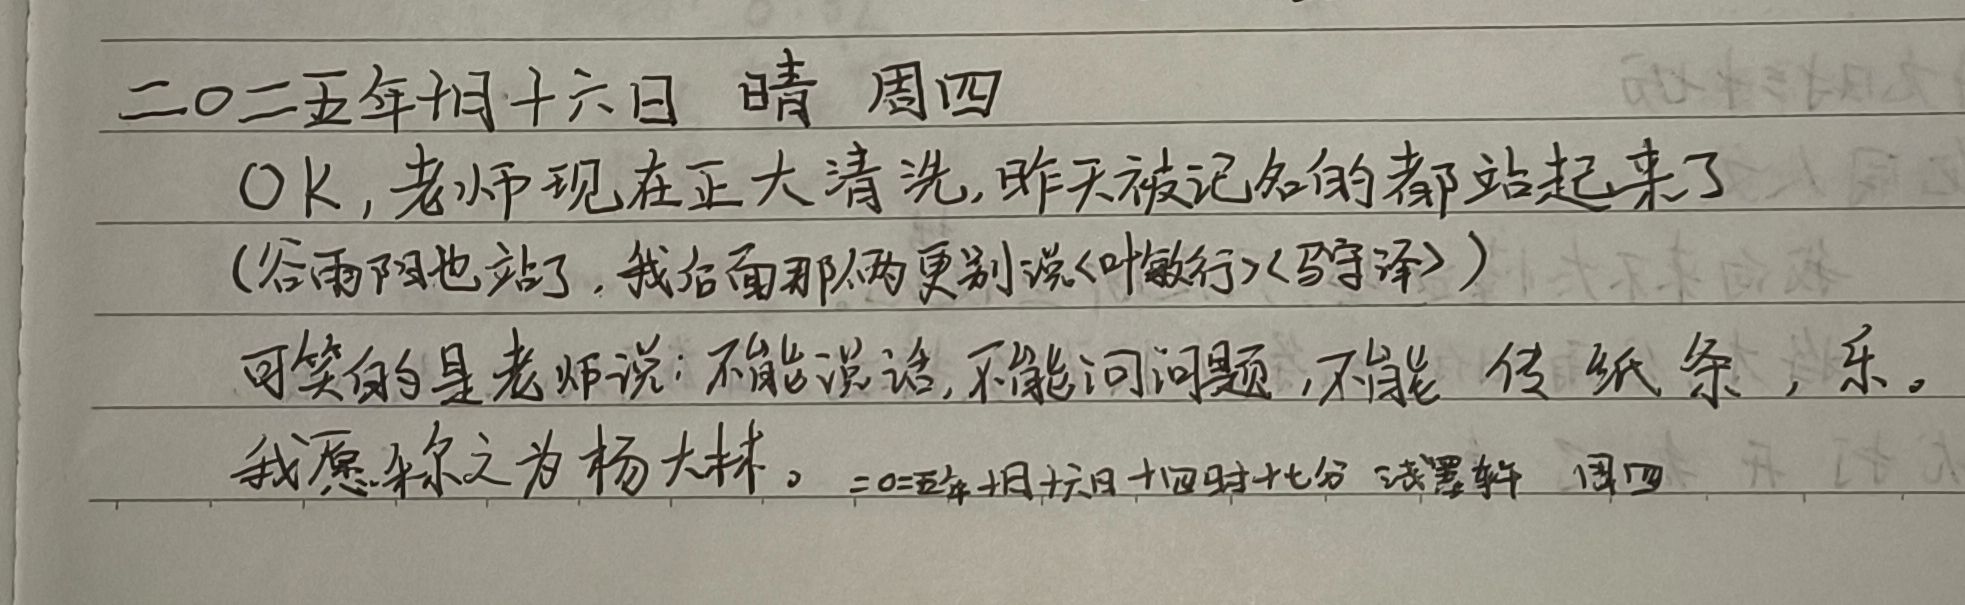 二〇二五年十月十六日 晴 周四
OK,老师现在正大清洗,昨天被记名的都站起来了
(谷雨阳也站了,我后面那俩更别说<叶敏行><马宇泽>)
可笑的是老师说:不能说话,不能问问题,不能传纸条,乐。
我愿称之为杨大林。二〇二五年十月十六日十四时十七分 浅墨轩 周四